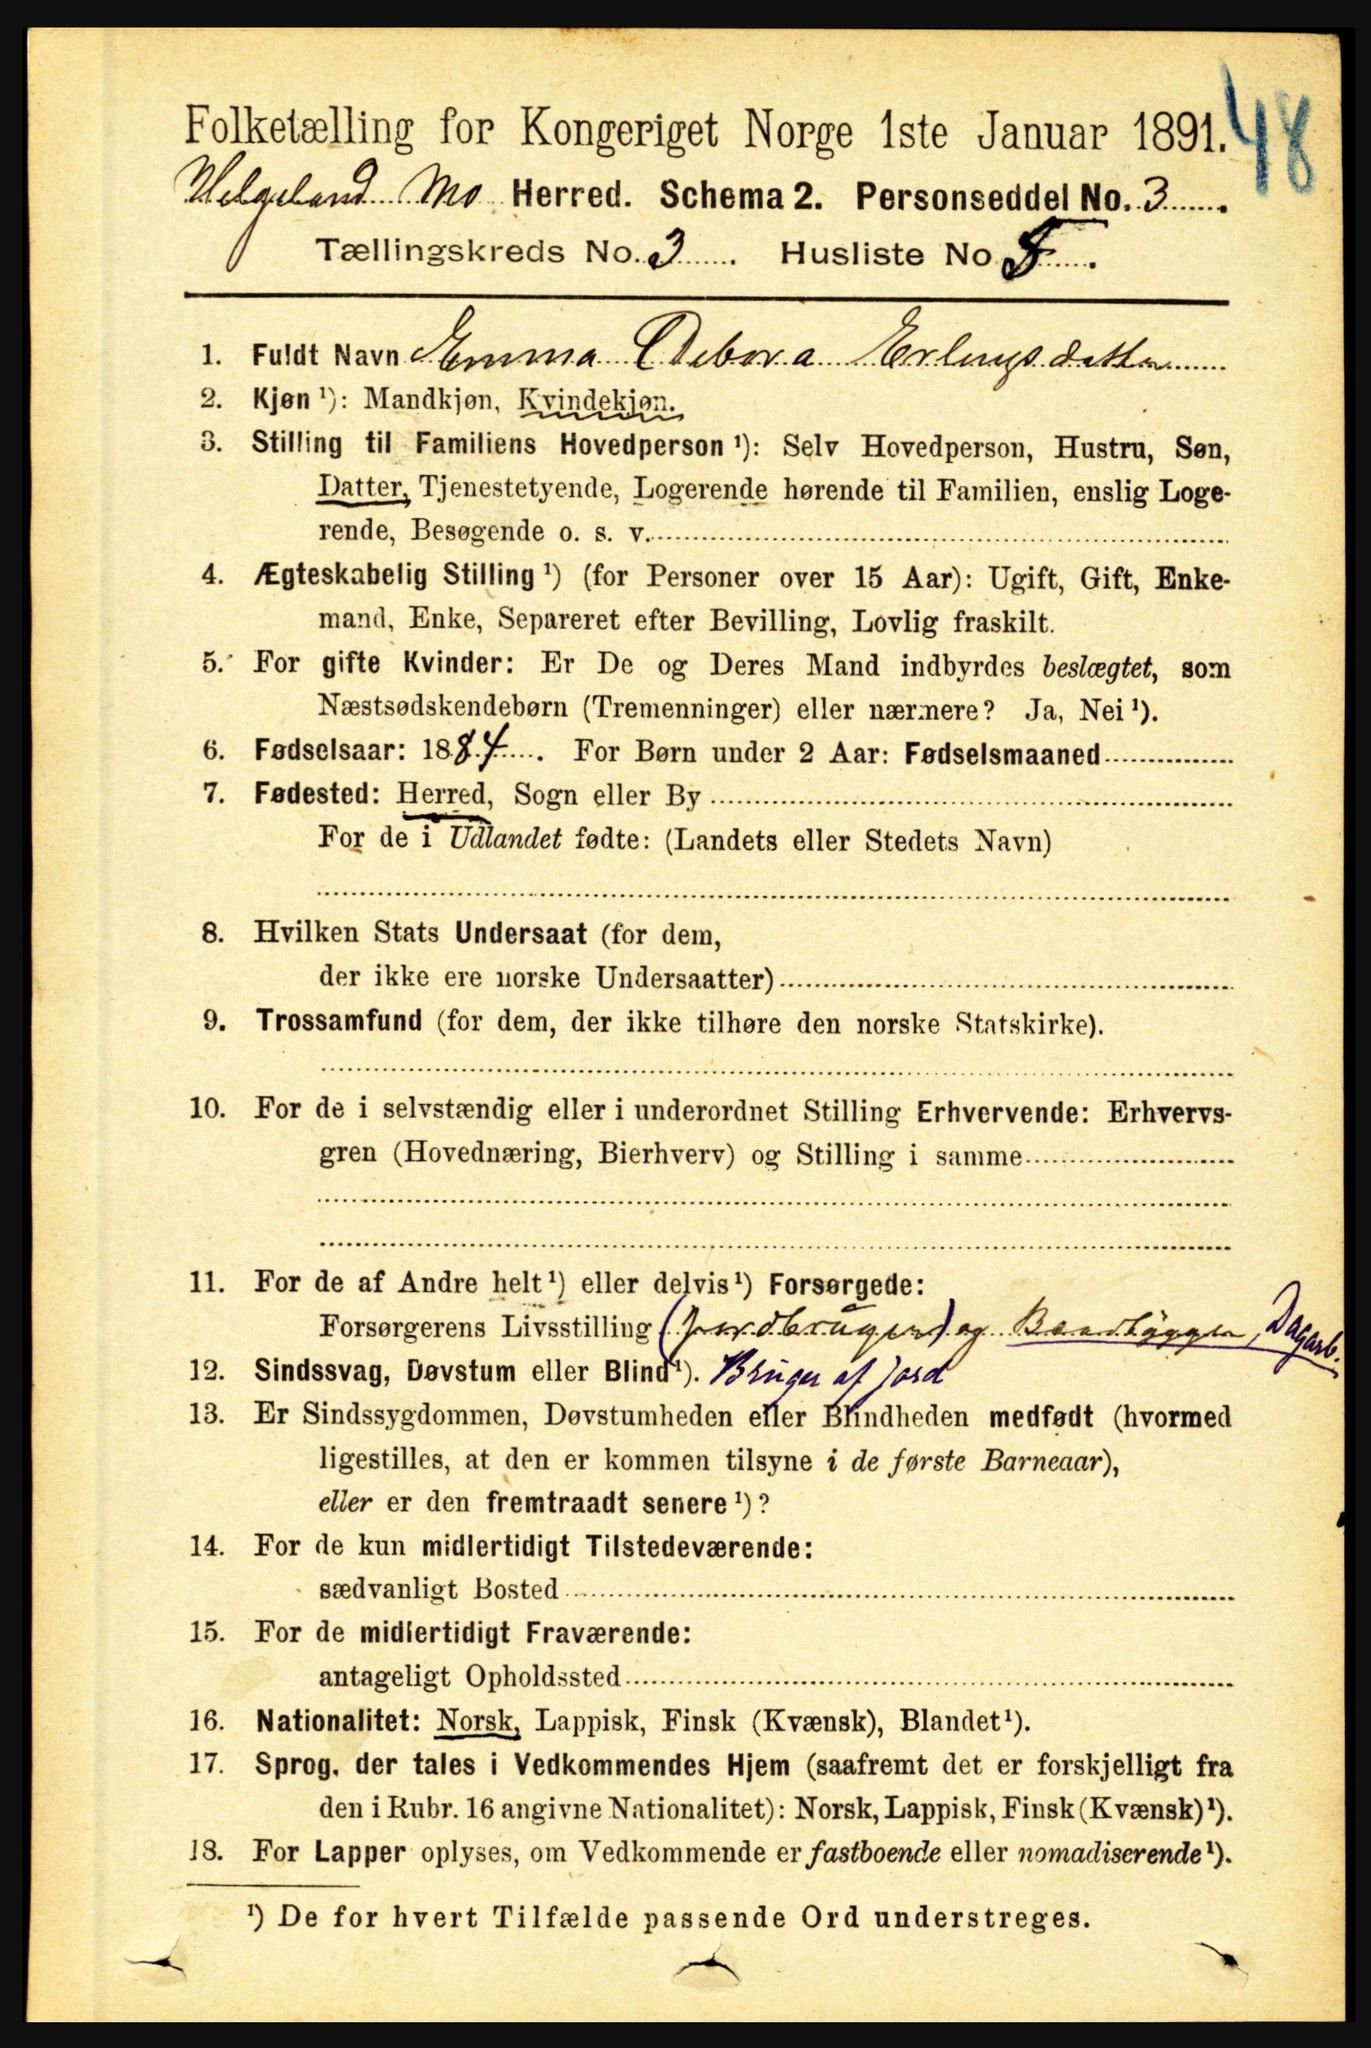 48
Folketælling for Kongeriget Norge 1ste Januar 1891.
Helgeland Mo Herred. Schema 2. Personseddel No. 3.
Tællingskreds No. 3. Husliste No.
1. Fuldt Navn Emma Debora Erlingsdatter
2. Kjøn ¹): Mandkjøn, Kvindekjøn.
3. Stilling til Familiens Hovedperson ¹): Selv Hovedperson, Hustru, Søn,
Datter, Tjenestetyende, Logerende hørende til Familien, enslig Loge-
rende, Besøgende o. s. v.
4. Ægteskabelig Stilling ¹) (for Personer over 15 Aar): Ugift, Gift, Enke-
mand, Enke, Separeret efter Bevilling, Lovlig fraskilt.
5. For gifte Kvinder: Er De og Deres Mand indbyrdes beslægtet, som
Næstsødskendebørn (Tremenninger) eller nærmere? Ja, Nei ¹).
6. Fødselsaar: 1884. For Børn under 2 Aar: Fødselsmaaned
7. Fødested: Herred, Sogn eller By
For de i Udlandet fødte: (Landets eller Stedets Navn)
8. Hvilken Stats Undersaat (for dem,
der ikke ere norske Undersaatter)
9. Trossamfund (for dem, der ikke tilhøre den norske Statskirke).
10. For de i selvstændig eller i underordnet Stilling Erhvervende: Erhvervs-
gren (Hovednæring, Bierhverv) og Stilling i samme
11. For de af Andre helt ¹) eller delvis ¹) Forsørgede:
Forsørgerens Livsstilling (jordbruger) og Baadbygger, Dagarb.
12. Sindssvag, Døvstum eller Blind ¹). Bruger af jord
13. Er Sindssygdommen, Døvstumheden eller Blindheden medfødt (hvormed
ligestilles, at den er kommen tilsyne i de første Barneaar),
eller er den fremtraadt senere ¹)?
14. For de kun midlertidigt Tilstedeværende:
sædvanligt Bosted
15. For de midlertidigt Fraværende:
antageligt Opholdssted
16. Nationalitet: Norsk, Lappisk, Finsk (Kvænsk), Blandet ¹).
17. Sprog, der tales i Vedkommendes Hjem (saafremt det er forskjelligt fra
den i Rubr. 16 angivne Nationalitet): Norsk, Lappisk, Finsk (Kvænsk) ¹).
18. For Lapper oplyses, om Vedkommende er fastboende eller nomadiserende ¹).
¹) De for hvert Tilfælde passende Ord understreges.